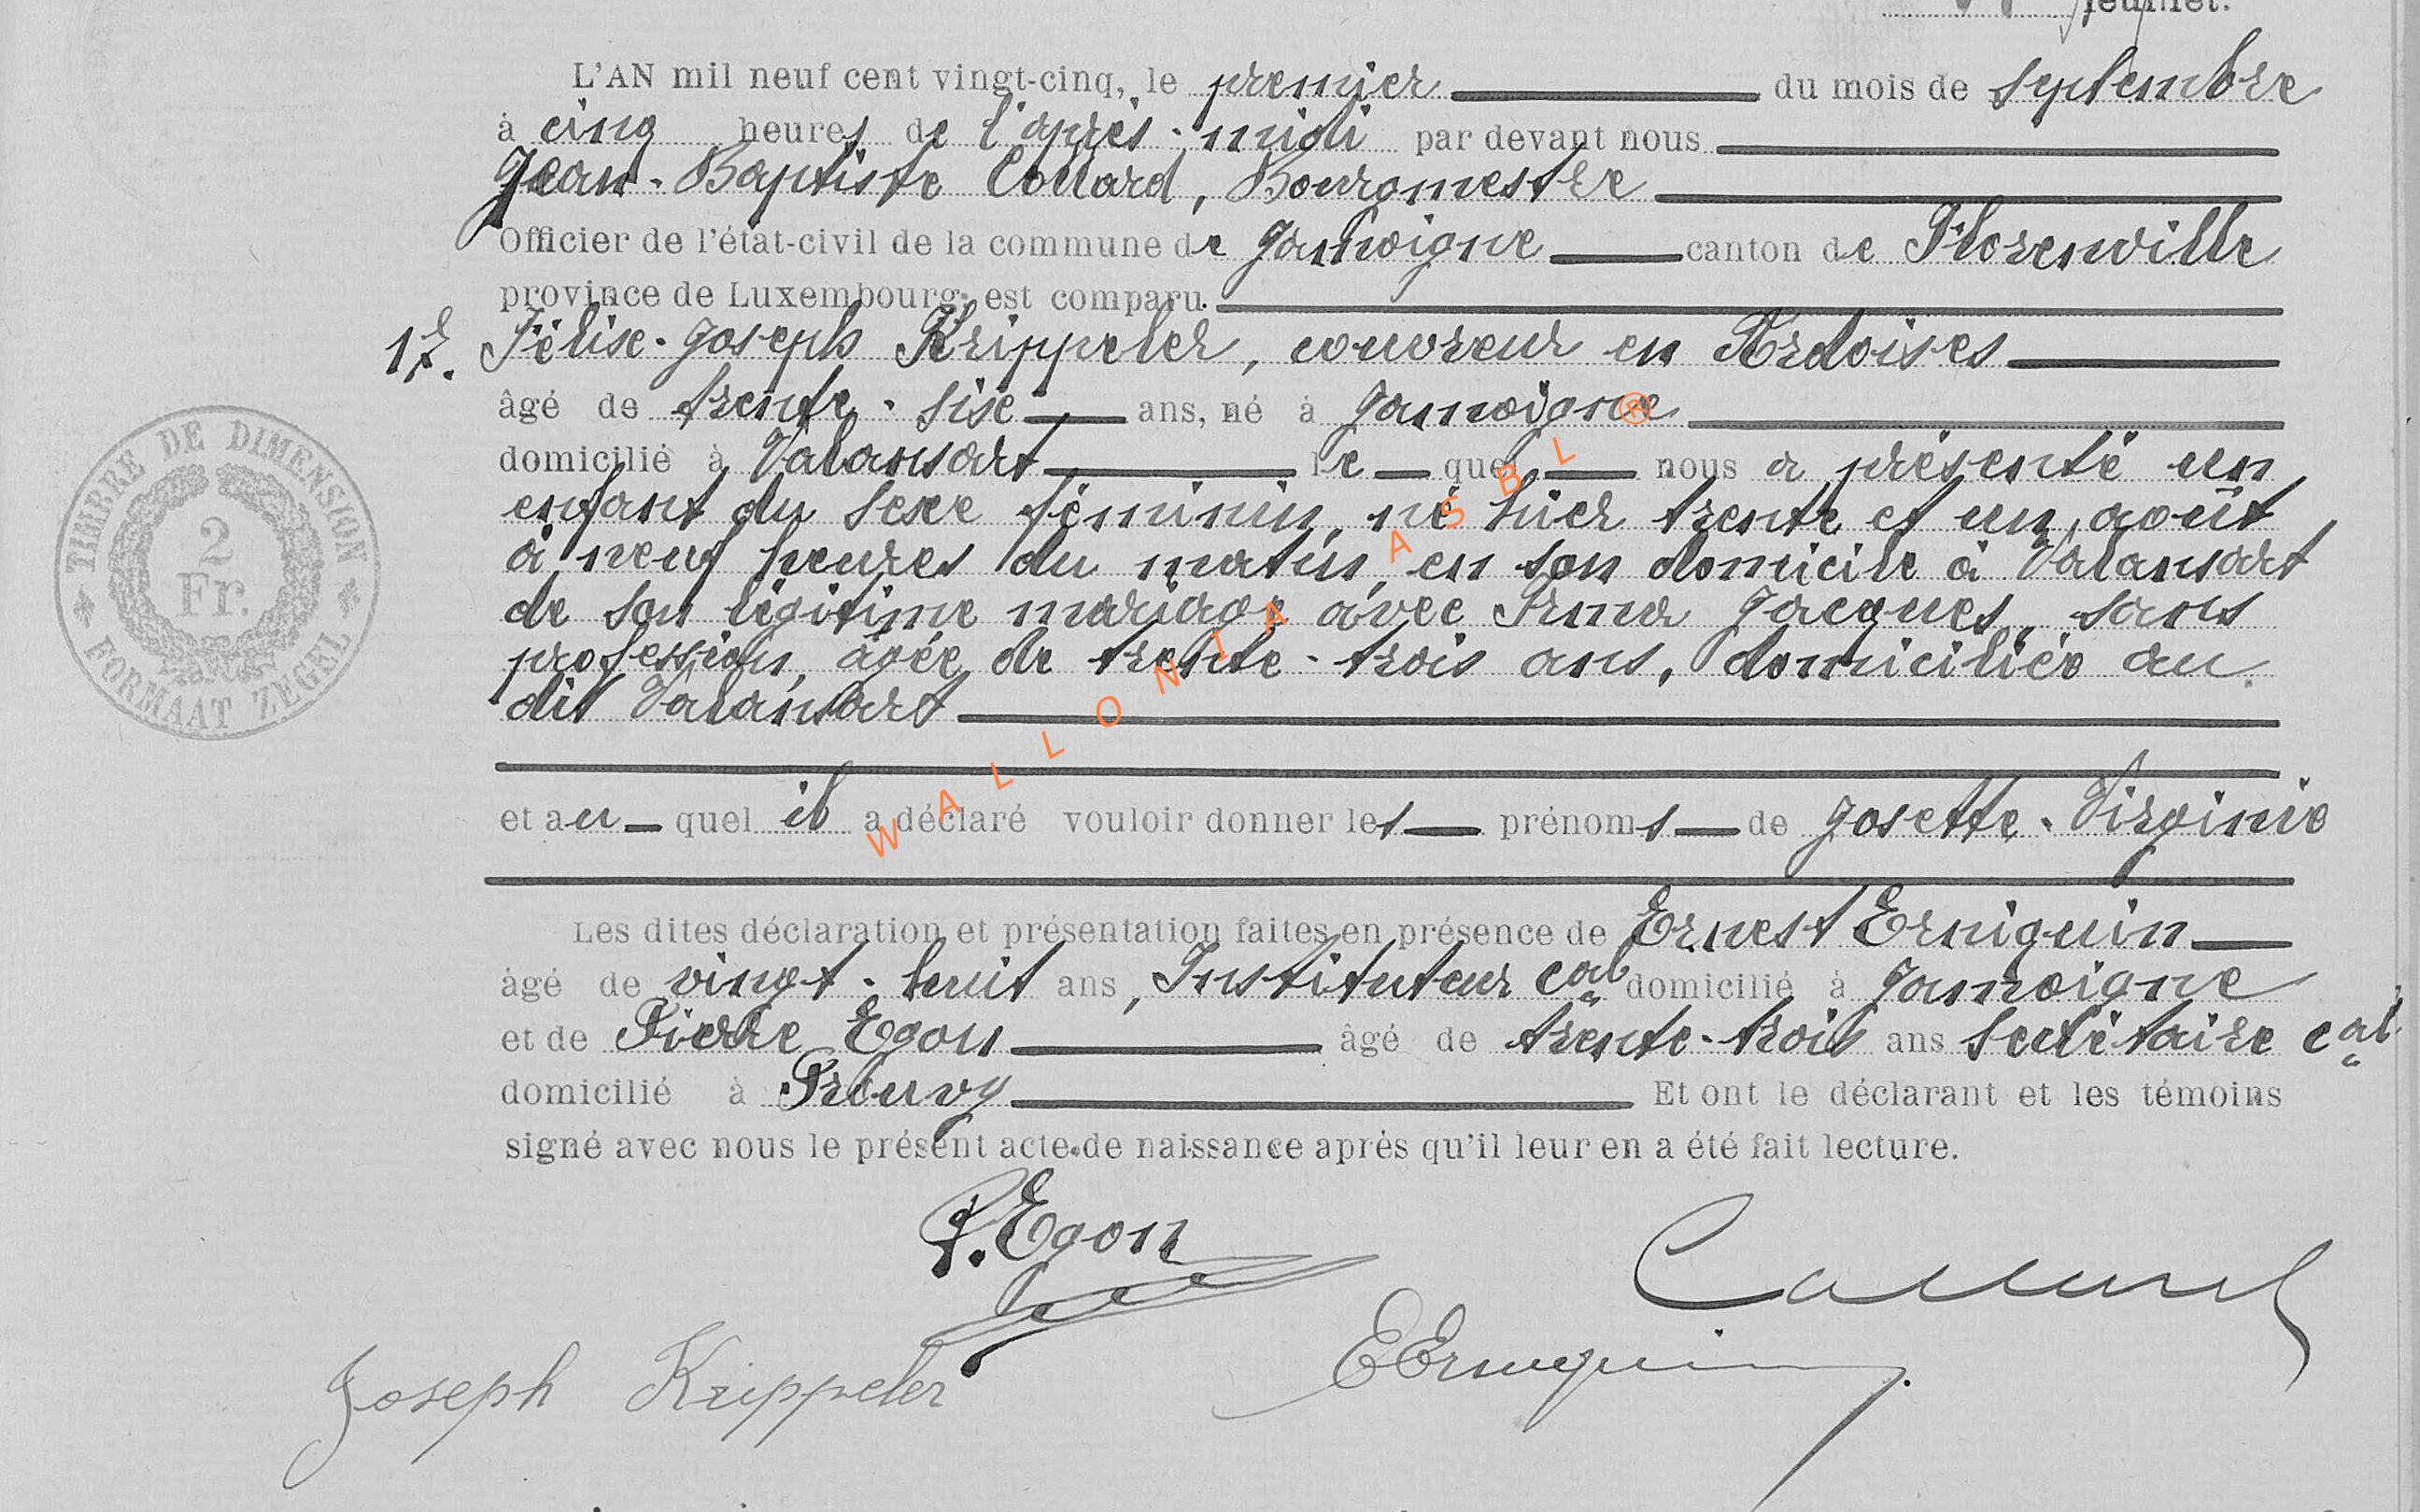 feuillet.
L'AN mil neuf cent vingt-cinq, le premier du mois de septembre
à cinq heures de l'après-midi par devant nous
Jean-Baptiste Collard, Bourgmestre
Officier de l'état-civil de la commune de Jamoigne canton de Florenville
province de Luxembourg, est comparu
17. Félise-Joseph Krippeler, couvreur en Ardoises
âgé de trente-sise ans, né à Jamoigne
domicilié à Valansart le quel nous a présenté un
enfant du sexe féminin, né hier trente et un août
à neuf heures du matin, en son domicile à Valansart
de son légitime mariage avec Irma Jacques, sans
profession, âgée de trente-trois ans, domiciliée au
dit Valansart
et au quel il a déclaré vouloir donner les prénoms de Josette-Virginie
Les dites déclaration et présentation faites en présence de Ernest Erniquin
âgé de vingt-huit ans, Instituteur cal domicilié à Jamoigne
et de Pierre Egon âgé de trente-trois ans secrétaire cal
domicilié à Prouvy Et ont le déclarant et les témoins
signé avec nous le présent acte de naissance après qu'il leur en a été fait lecture.
P. Egon
Collard
E Erniquin
Joseph Krippeler
TIMBRE DE DIMENSION
2
Fr.
FORMAAT ZEGEL
WALLONIA ASBL ®